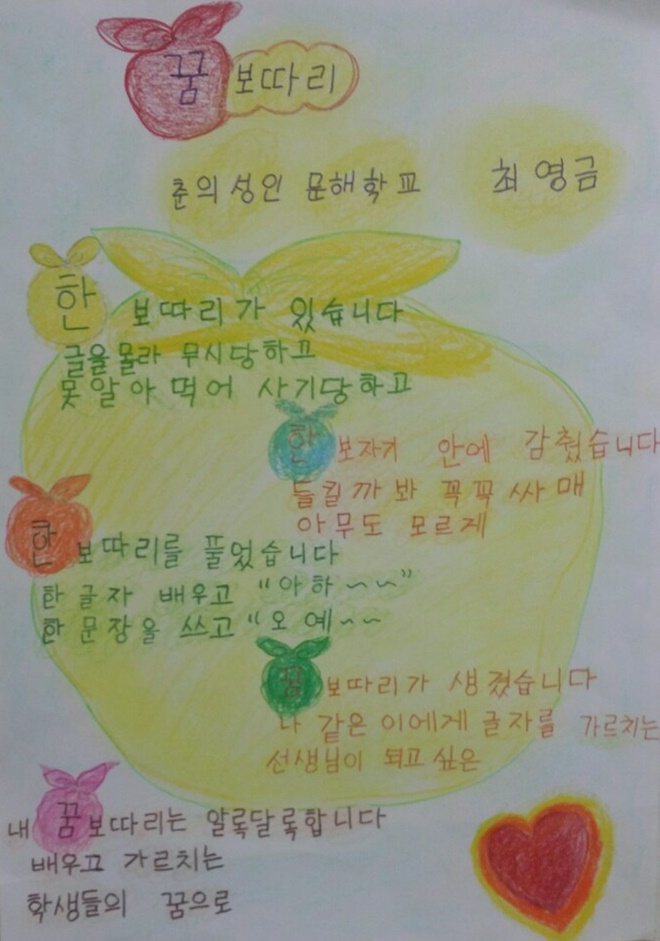 꿈 보따리
춘의성인 문해학교 최영금
한 보따리가 있습니다
글을 몰라 무시당하고
못 알아 먹어 사기당하고
한 보자기 안에 감췄습니다
들킬까 봐 꼭꼭 싸매
아무도 모르게
한 보따리를 풀었습니다
한 글자 배우고 "아하~~"
한 문장을 쓰고 "오예~~
꿈 보따리가 생겼습니다
나 같은 이에게 글자를 가르치는
선생님이 되고 싶은
내 꿈 보따리는 알록달록합니다
배우고 가르치는
학생들의 꿈으로